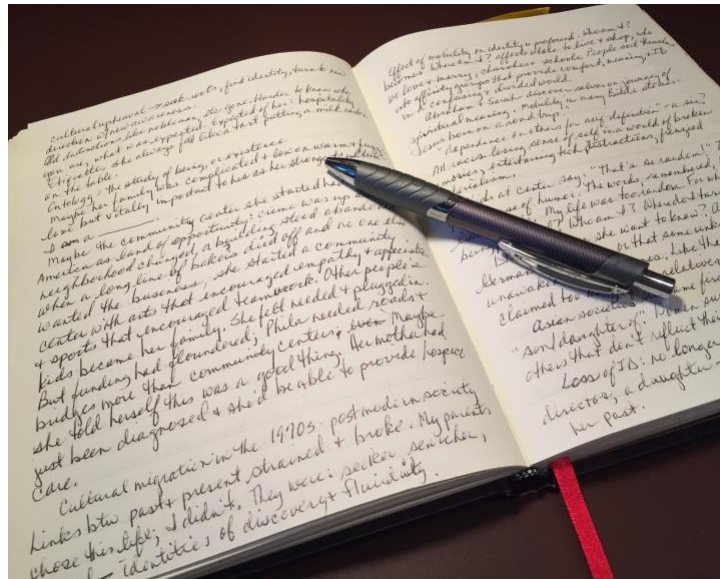 Cultural upheaval → seek roots, find identity, turn to new
direction & new awareness.
Old distinctions like nobleman, etc gone. Harder to know who
you are, what was expected. Expected of her: hospitality,
etiquette. She always felt like a tart putting a milk carton
on the table.
Ontology - the study of being, or existence
Maybe her family was complicated &
love but vitally important to her as her strongest
I am a
Maybe the community center she started had
America as land of opportunity: crime was up
neighborhood changed, a building stood abandoned
when a long line of bakers died off and no one else
wanted the business, she started a community
center with arts that encouraged empathy & appreciation
& sports that encouraged teamwork. Other people's
kids became her family. She felt needed & plugged in.
But funding had floundered; Phila needed roads &
bridges more than community centers, even Maybe
she told herself this was a good thing. Her mother had
just been diagnosed & she'd be able to provide hospice
care.
Cultural migration in the 1970s - postmodern society
Links btw past & present strained & broke. My parents
chose this life; I didn't. They were: seeker, searcher,
identities of discovery & fluidity.
Effect of mobility on identity is profound. Who am I?
becomes Where am I? affects where to live & shop, who
we love & marry, churches, schools. People sort themselves
into affinity groups that provide comfort, meaning, & ID
in a confusing & divided world.
Abraham & Sarah discover selves on journey of
spiritual meaning. Mobility in many Bible stories.
Jesus born on a road trip.
"dependence on others for self-definition"
All races losing sense of self in a world of broken
entertaining tech distractions, frenzied
materialism.
Kids at center say: "That's so random!"
sense of humor. The words, remembered,
My life was too random. For who
? Who am I? Where do I turn
she want to know?
or that some
unaware Like the
claimed too relatives
Asian societies
"son/daughter of" Women
others that don't reflect their
Loss of ID: no longer
director, a daughter
her past.